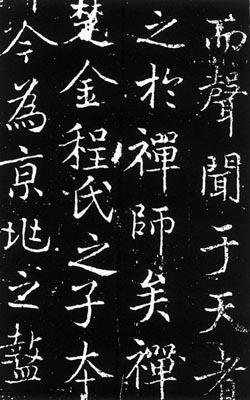 而聲聞于天者
之於禪師矣禪
楚金程氏之子夲
今為京兆之盩